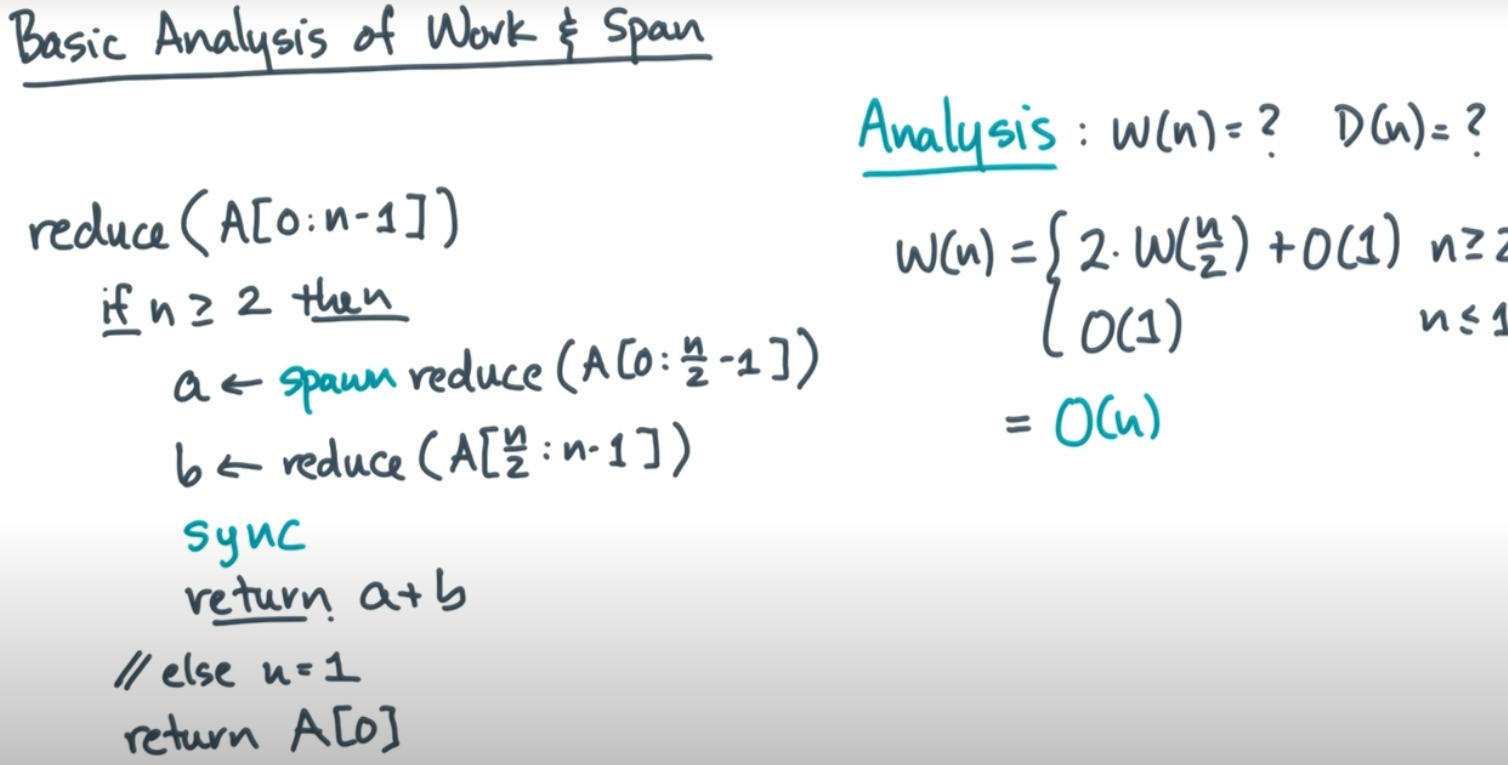 Basic Analysis of Work & Span
reduce(A[0:n-1])
if n ≥ 2 then
a ← spawn reduce(A[0:n/2-1])
b ← reduce(A[n/2:n-1])
sync
return a+b
// else n=1
return A[0]
Analysis: W(n)=? D(n)=?
W(n) = { 2·W(n/2) + O(1) n≥2
O(1) n≤1
= O(n)